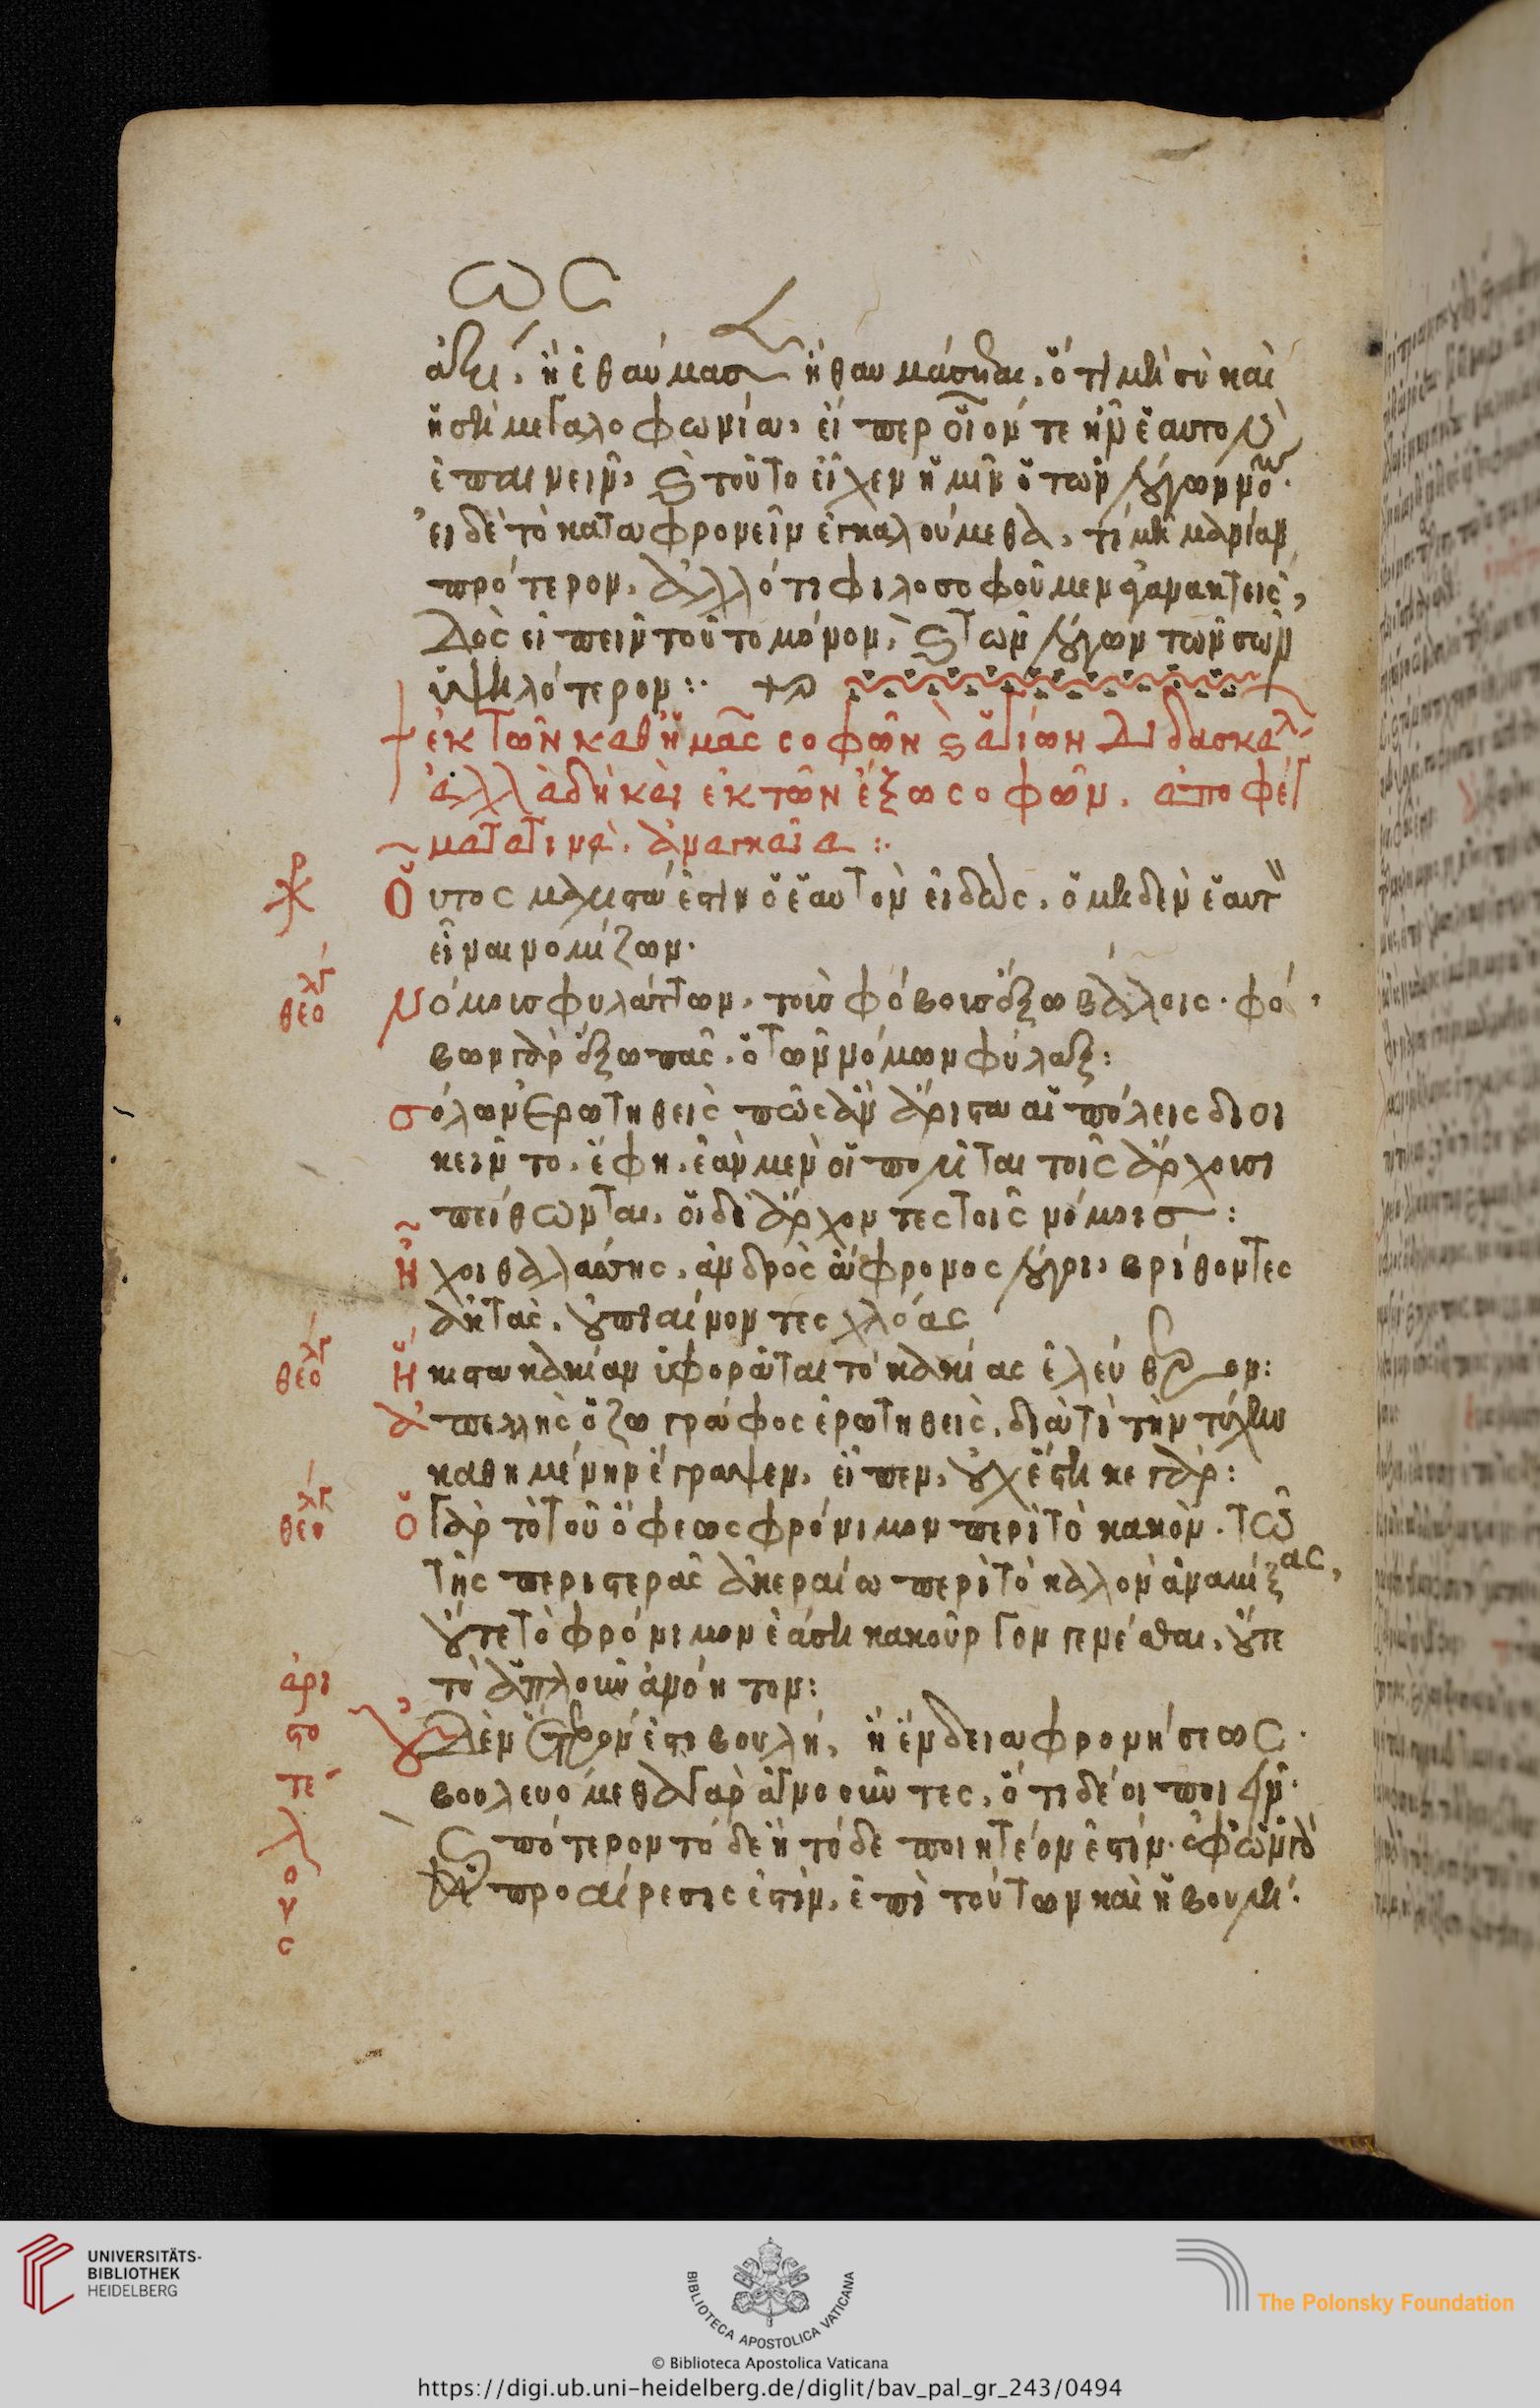 ὡς
ἄξει, ἢ ἐθαύμασ ἢ θαυμάσεται, ὅτι μὴ σὺ καὶ
ἡ σὴ μεγαλοφωνία, εἴπερ οἷόν τε ἦν ἑαυτοὺς
ἐπαινεῖν, καὶ τοῦτο εἶχεν ἡμῖν ὁ τῶν λόγων νόμος.
εἰ δὲ τὸ καταφρονεῖν ἐγκαλούμεθα, τί μὴ μανίαν
πρότερον, ἀλλ' ὅτι φιλοσοφοῦμεν ἀγανακτεῖς,
δὸς εἰπεῖν τοῦτο μόνον, καὶ τῶν λόγων τῶν σῶν
ὑψηλότερον:
ἐκ τῶν καθ' ἡμᾶς σοφῶν καὶ ἁγίων διδασκαλ
ἀλλὰ δὴ καὶ ἐκ τῶν ἔξω σοφῶν, ἀποφθέγ
ματα τινὰ ἀναγκαῖα:
Οὗτος μάλιστά ἐστιν ὁ ἑαυτὸν εἰδὼς, ὁ μηδὲν ἑαυτὸν
εἶναι νομίζων.
Θεολγ
Νόμοις φυλάττων, τοῖς φόβοις ἔξω βάλλοις. φό
βων γὰρ ἔξω πᾶς, ὁ τῶν νόμων φύλαξ:
Σόλων ἐρωτηθεὶς πῶς ἂν ἄριστα αἱ πόλεις διοι
κεῖντο, ἔφη, ἐὰν μὲν οἱ πολῖται τοῖς ἄρχουσι
πείθωνται, οἱ δὲ ἄρχοντες τοῖς νόμοις:
Ἦχοι θαλάσσης, ἀνδρὸς ἄφρονος λόγοι, βρίθοντες
ἀκτὰς, οὐ πιαίνοντες χλόας
Θεολγ
Ἥκιστα κακίαν ὑφορᾶται τὸ κακίας ἐλεύθερον:
Ἀπελλῆς ὁ ζωγράφος ἐρωτηθεὶς, διατὶ τὴν τύχην
καθημένην ἔγραψεν, εἶπεν, οὐχ ἕστηκε γάρ:
Θεολγ
Ὁ γὰρ τὸ τοῦ ὄφεως φρόνιμον περὶ τὸ κακὸν, τῶ
τῆς περιστερᾶς ἀκεραίω περὶ τὸ καλὸν ἀναμίξας,
οὔτε τὸ φρόνιμον ἐάσει κακοῦργον γενέσθαι, οὔτε
τὸ ἁπλοῦν ἀνόητον:
ἀρι
στο
τέ
λ
ο
υ
ς
Οὐδὲν ἕτερόν ἐστι βουλὴ, ἢ ἔνδεια φρονήσεως.
βουλευόμεθα γὰρ ἀγνοοῦντες, ὅ τι δέοι ποιεῖν.
καὶ πότερον τόδε ἢ τόδε ποιητέον ἐστίν. ἐφ' ὧν γὰρ
προαίρεσις ἐστὶν, ἐπὶ τούτων καὶ ἡ βουλή:
UNIVERSITÄTS-
BIBLIOTHEK
HEIDELBERG
BIBLIOTECA APOSTOLICA VATICANA
The Polonsky Foundation
© Biblioteca Apostolica Vaticana
https://digi.ub.uni-heidelberg.de/diglit/bav_pal_gr_243/0494